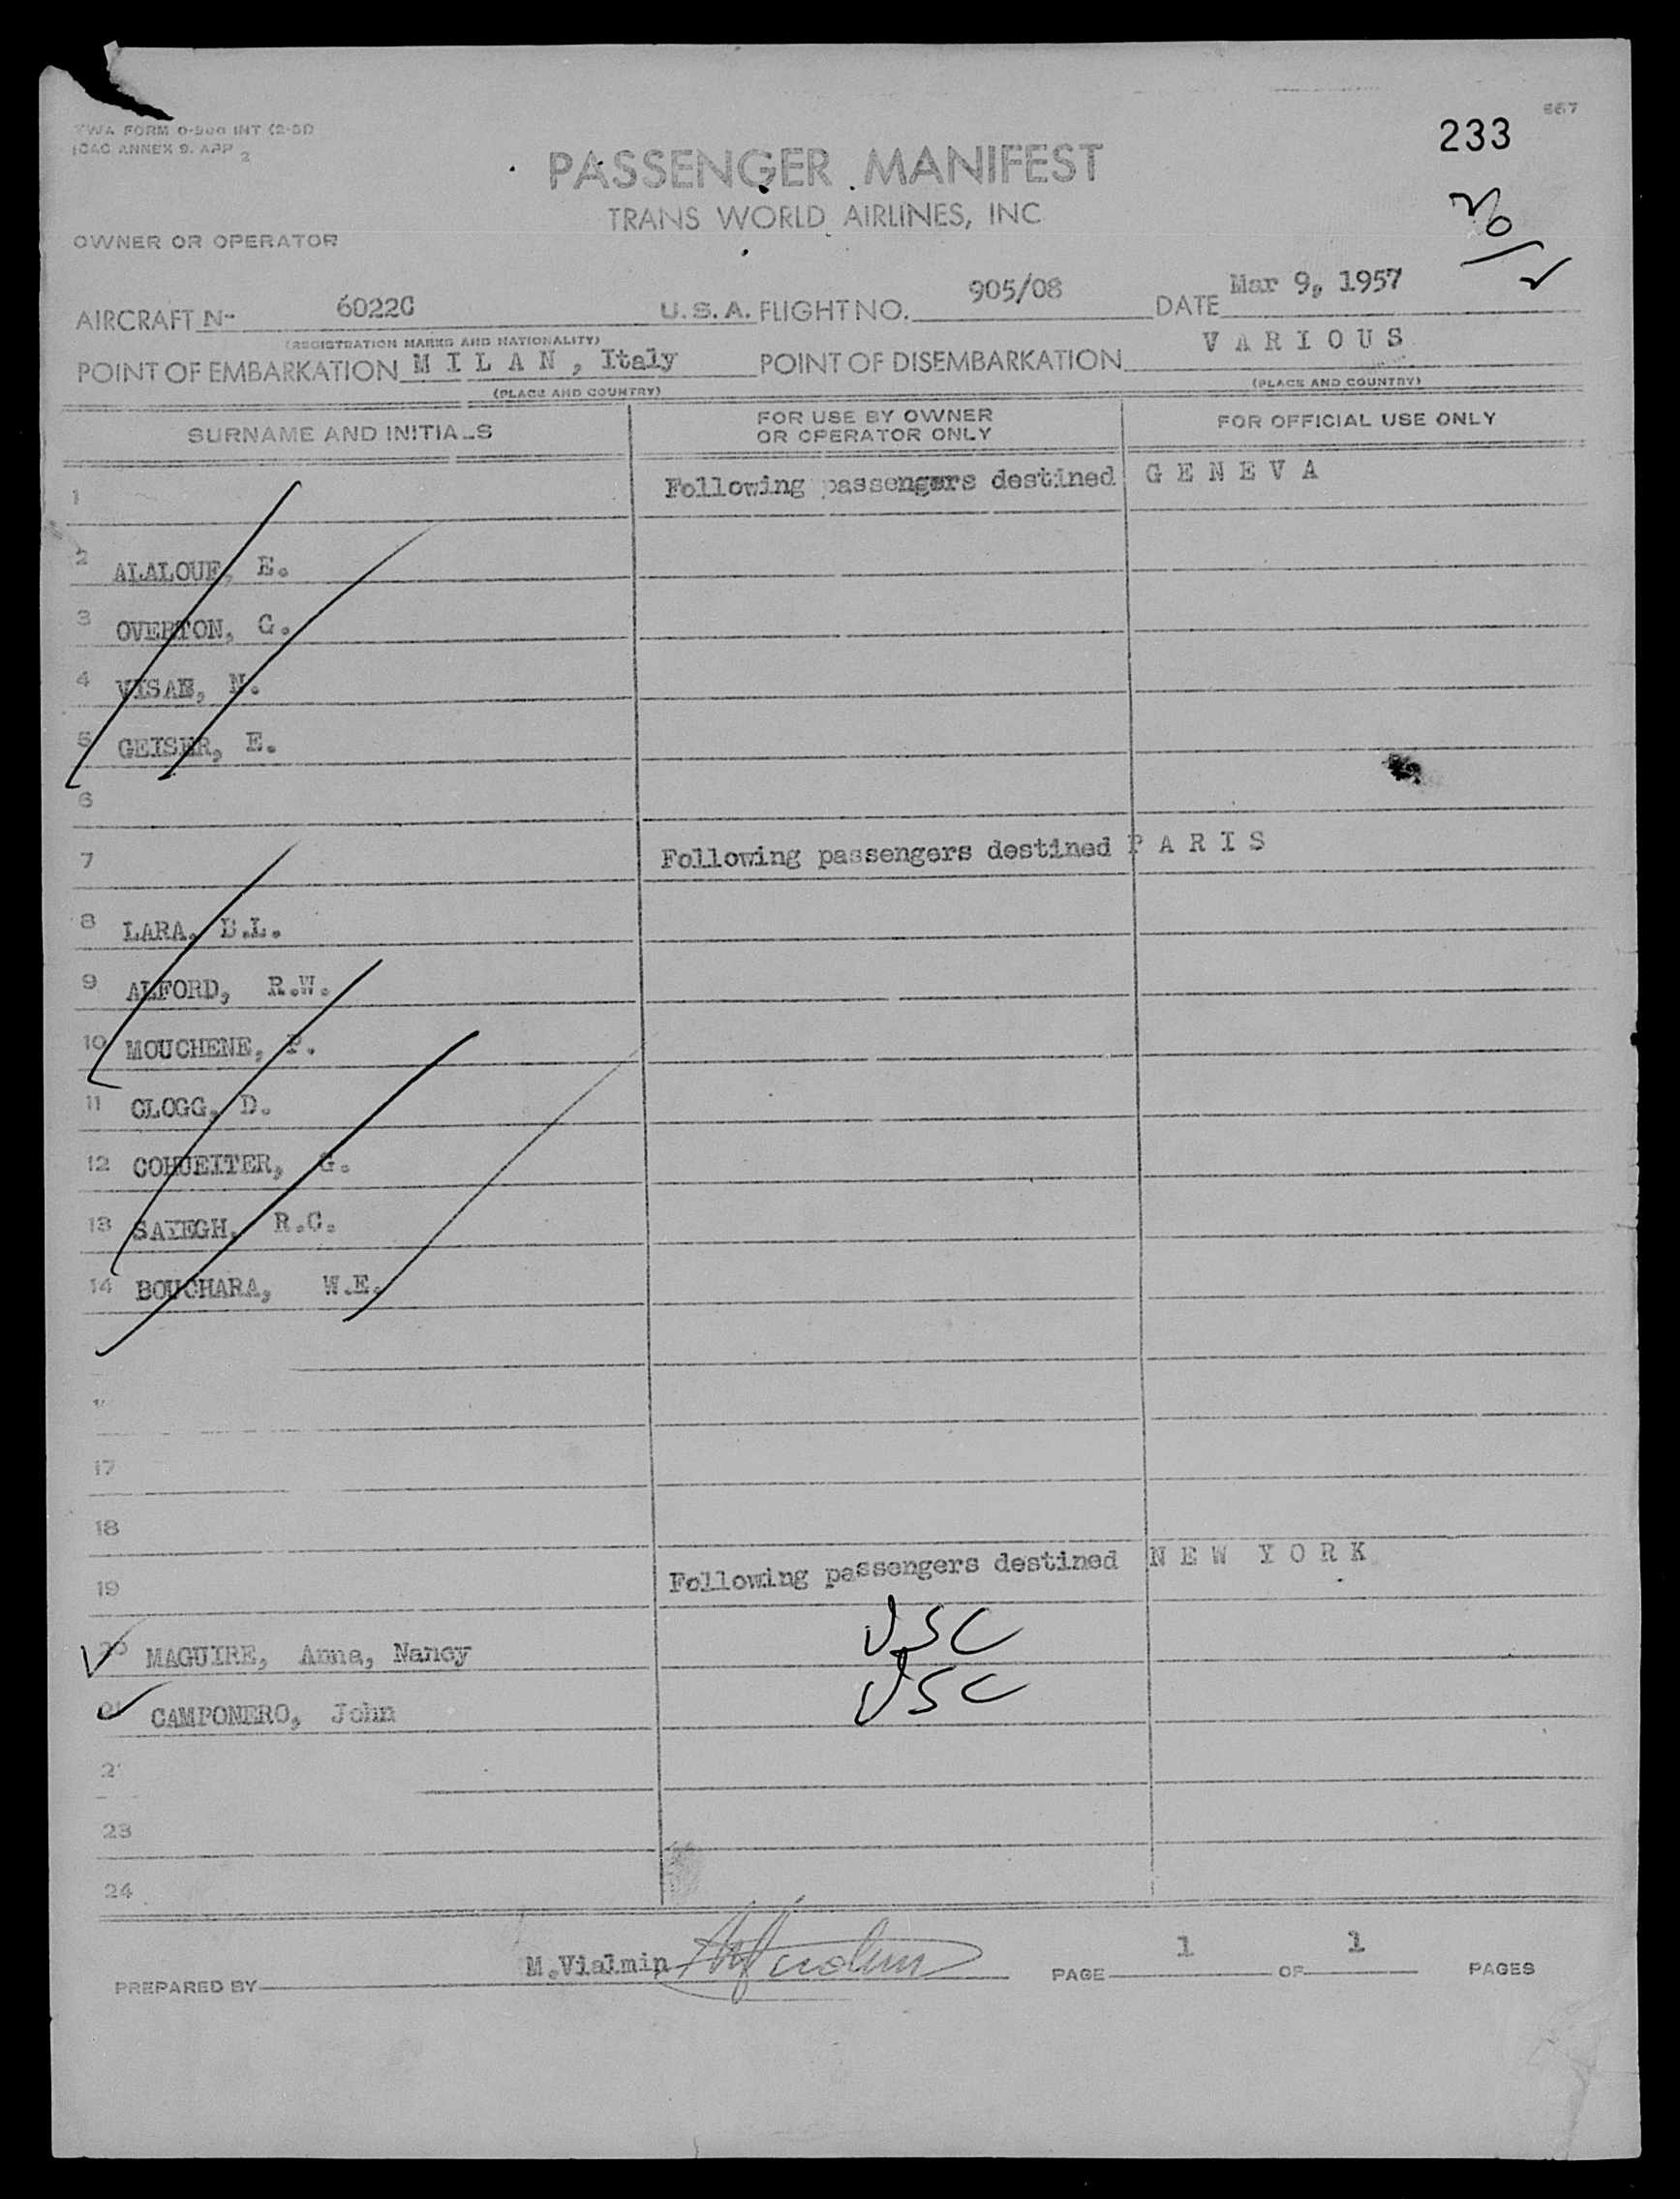 667
TWA FORM O-500 INT (2-51)
ICAO ANNEX 9. APP 2
233
PASSENGER MANIFEST
TRANS WORLD AIRLINES, INC
OWNER OR OPERATOR
AIRCRAFT N- 6022C U.S.A. FLIGHT NO. 905/08 DATE Mar 9, 1957
(REGISTRATION MARKS AND NATIONALITY)
POINT OF EMBARKATION M I L A N , Italy POINT OF DISEMBARKATION V A R I O U S
(PLACE AND COUNTRY) (PLACE AND COUNTRY)
SURNAME AND INITIALS FOR USE BY OWNER OR OPERATOR ONLY FOR OFFICIAL USE ONLY
1 Following passengers destined G E N E V A
2 ALALOUF, E.
3 OVERTON, G.
4 VISAE, N.
5 GEISER, E.
6
7 Following passengers destined P A R I S
8 LARA, B.L.
9 ALFORD, R.W.
10 MOUCHENE, P.
11 CLOGG, D.
12 COHUEITER, G.
13 SAYEGH, R.C.
14 BOUCHARA, W.E.
17
18
19 Following passengers destined N E W Y O R K
20 MAGUIRE, Anna, Nancy USC
21 CAMPONERO, John USC
2
23
24
PREPARED BY M.Vialmin PAGE 1 OF 1 PAGES